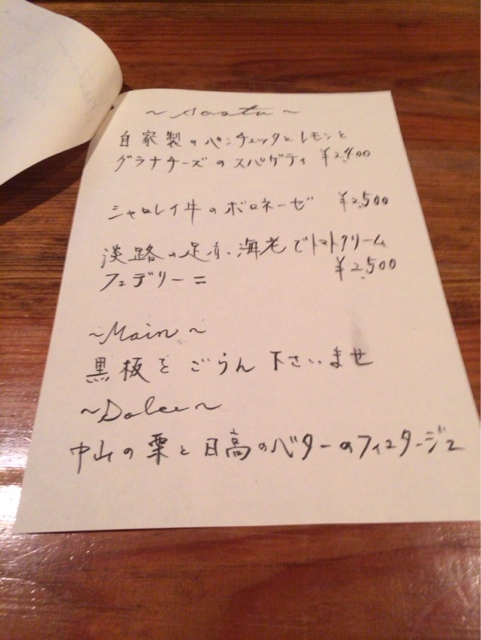 ~Pasta~
自家製のパンチェッタとレモンと
グラナチーズのスパゲティ ¥2,400
シャロレイ牛のボロネーゼ ¥2,500
淡路の足赤海老でトマトクリーム
フェデリーニ ¥2,500
~Main~
黒板をごらん下さいませ
~Dolce~
中山の栗と日高のバターの